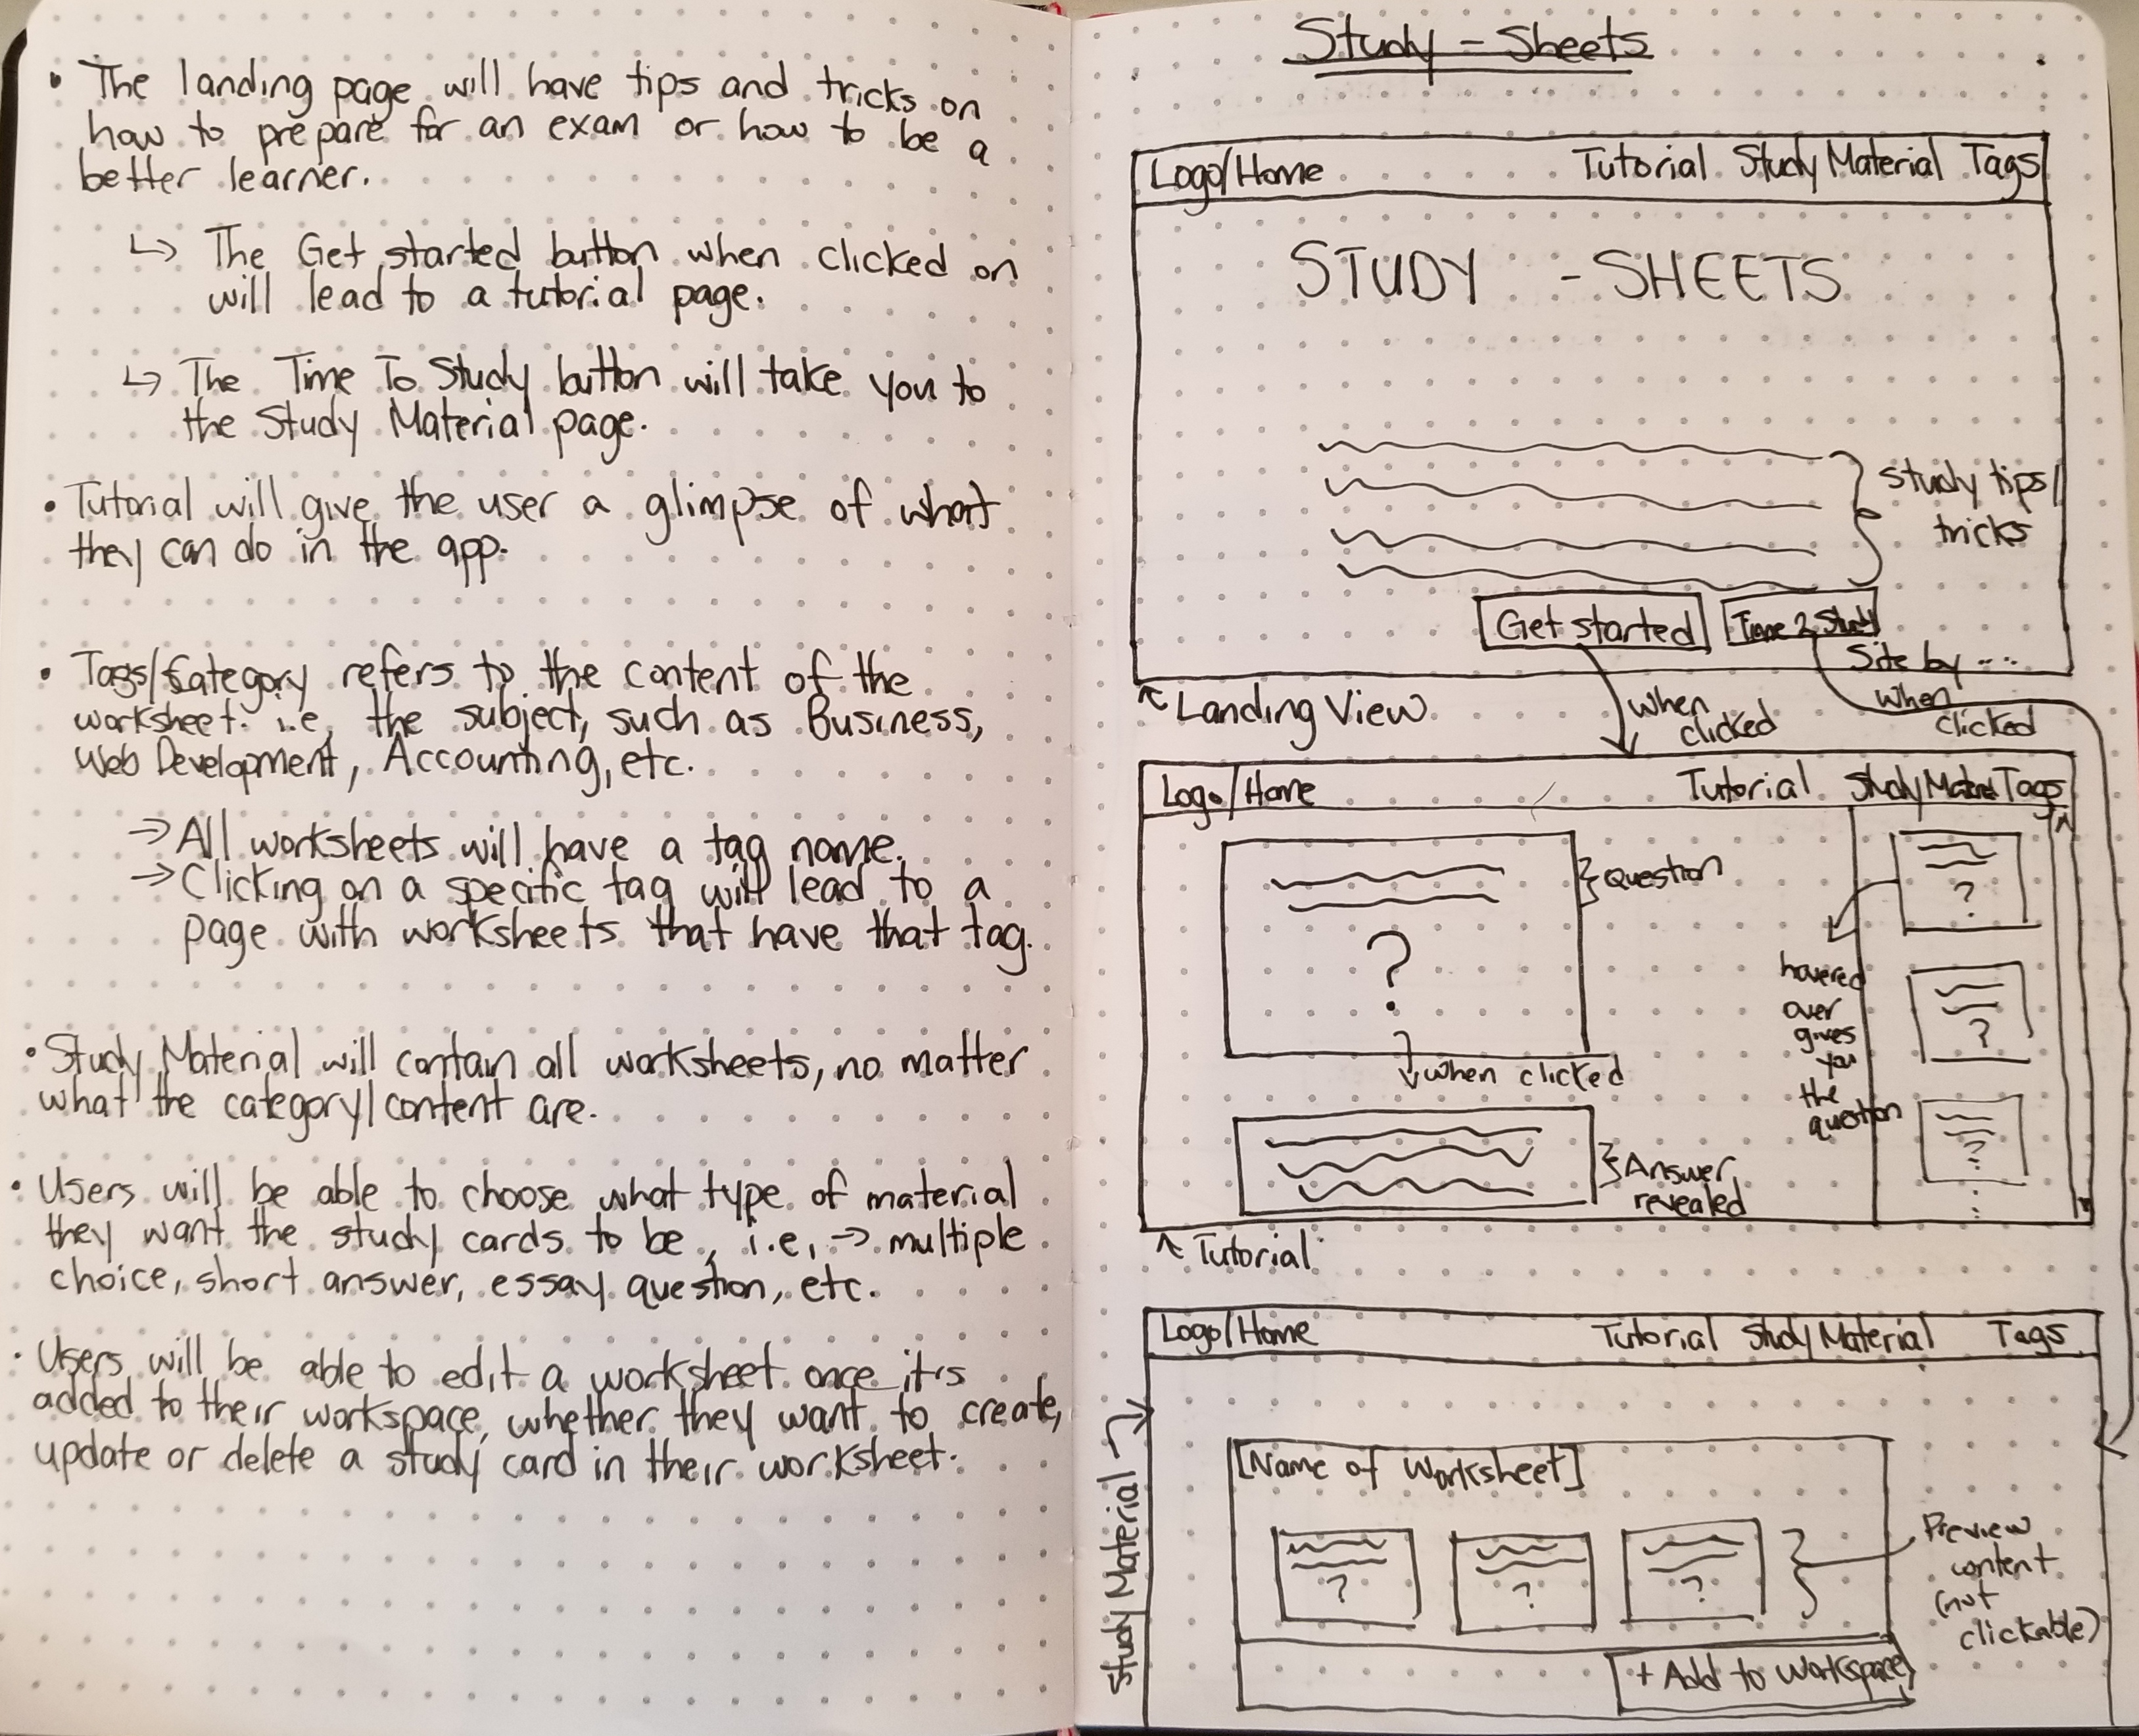 • The landing page will have tips and tricks on
how to prepare for an exam or how to be a
better learner.
↳ The Get started button when clicked on
will lead to a tutorial page.
↳ The Time To Study button will take you to
the Study Material page.
• Tutorial will give the user a glimpse of what
they can do in the app.
• Tags/Category refers to the content of the
worksheet. i.e, the subject, such as Business,
Web Development, Accounting, etc.
→ All worksheets will have a tag name.
→ Clicking on a specific tag will lead to a
page with worksheets that have that tag.
• Study Material will contain all worksheets, no matter
what the category/content are.
• Users will be able to choose what type of material
they want the study cards to be, i.e, → multiple
choice, short answer, essay question, etc.
• Users will be able to edit a worksheet once it's
added to their workspace, whether they want to create,
update or delete a study card in their worksheet.
Study - Sheets
Logo/Home Tutorial Study Material Tags
STUDY - SHEETS
study tips/
tricks
Get started
Time 2 Study
Site by ...
↖ Landing View
when
clicked
when
clicked
Logo/Home Tutorial Study Material Tags
Question
?
?
hovered
over
gives
you
the
question
?
?
↓ when clicked
Answer
revealed
↖ Tutorial
Logo/Home Tutorial Study Material Tags
Study Material
[Name of Worksheet]
?
?
?
Preview
content
(not
clickable)
+ Add to workspace